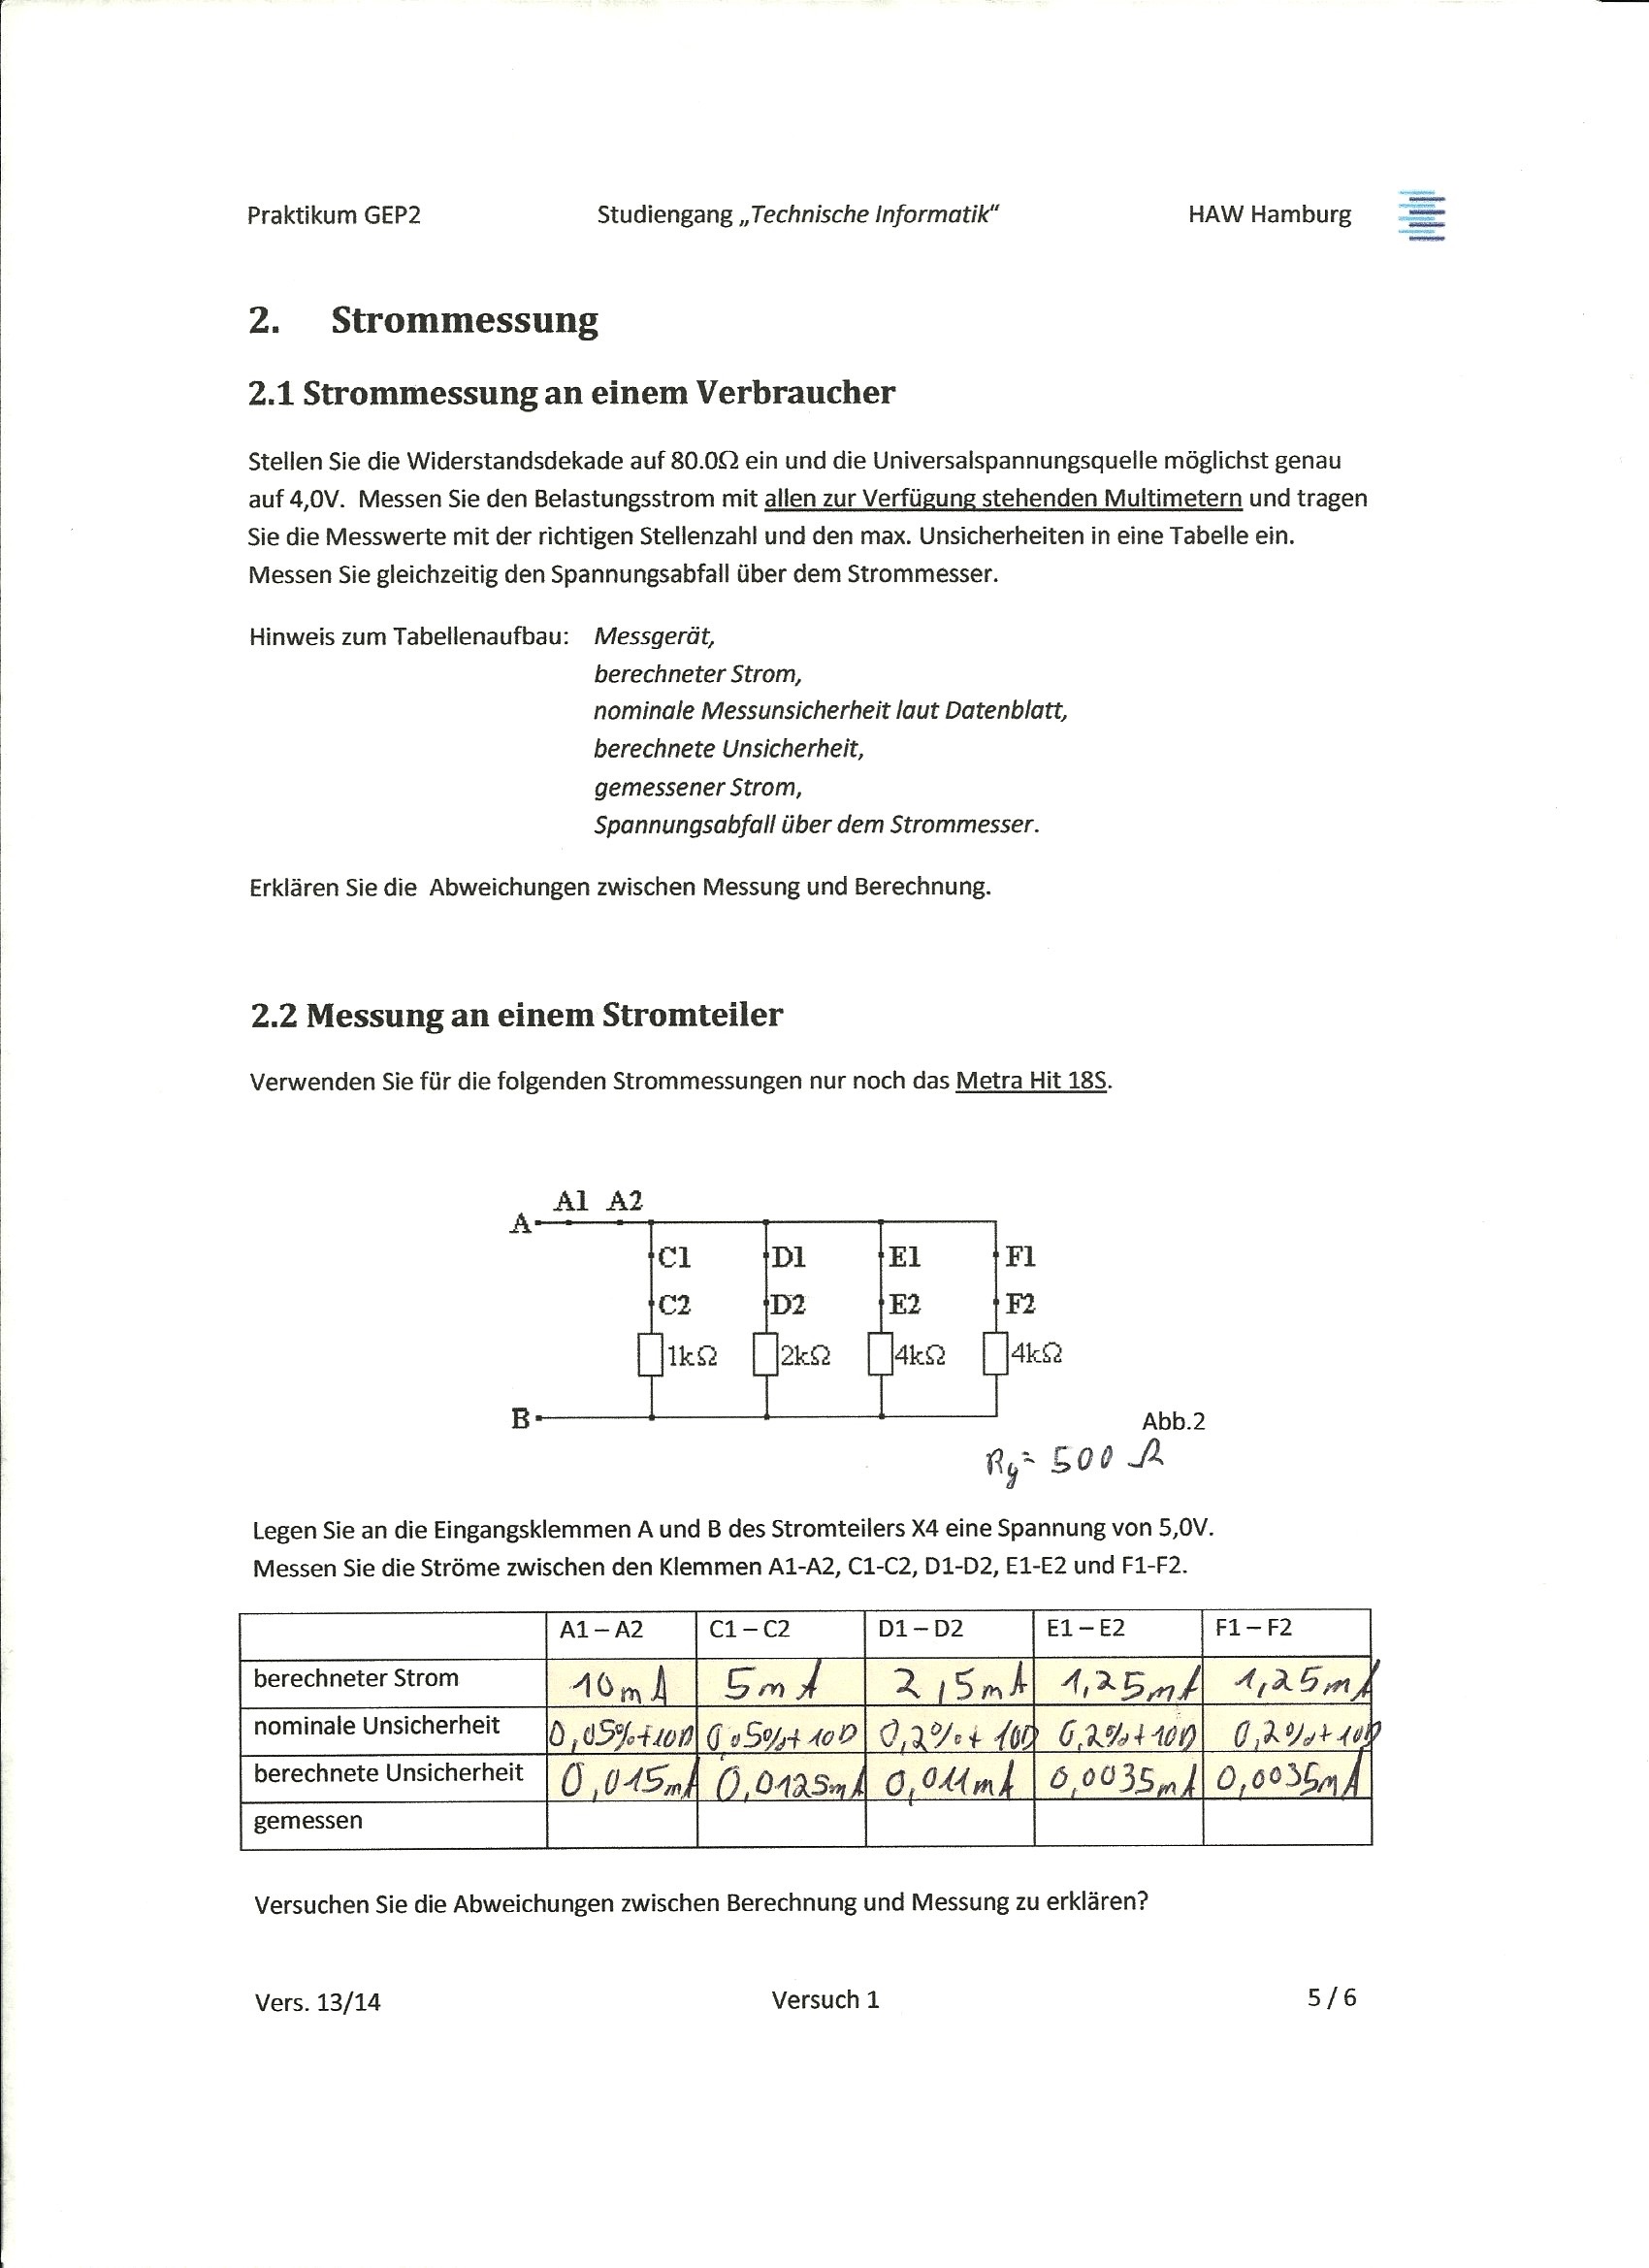 Praktikum GEP2 Studiengang „Technische Informatik“ HAW Hamburg
2. Strommessung
2.1 Strommessung an einem Verbraucher
Stellen Sie die Widerstandsdekade auf 80.0Ω ein und die Universalspannungsquelle möglichst genau
auf 4,0V. Messen Sie den Belastungsstrom mit allen zur Verfügung stehenden Multimetern und tragen
Sie die Messwerte mit der richtigen Stellenzahl und den max. Unsicherheiten in eine Tabelle ein.
Messen Sie gleichzeitig den Spannungsabfall über dem Strommesser.
Hinweis zum Tabellenaufbau: Messgerät,
berechneter Strom,
nominale Messunsicherheit laut Datenblatt,
berechnete Unsicherheit,
gemessener Strom,
Spannungsabfall über dem Strommesser.
Erklären Sie die Abweichungen zwischen Messung und Berechnung.
2.2 Messung an einem Stromteiler
Verwenden Sie für die folgenden Strommessungen nur noch das Metra Hit 18S.
A1 A2
A
C1 D1 E1 F1
C2 D2 E2 F2
1kΩ 2kΩ 4kΩ 4kΩ
B
Abb.2
Rg = 500 Ω
Legen Sie an die Eingangsklemmen A und B des Stromteilers X4 eine Spannung von 5,0V.
Messen Sie die Ströme zwischen den Klemmen A1-A2, C1-C2, D1-D2, E1-E2 und F1-F2.
A1 – A2 C1 – C2 D1 – D2 E1 – E2 F1 – F2
berechneter Strom 10mA 5mA 2,5mA 1,25mA 1,25mA
nominale Unsicherheit 0,05%+10D 0,05%+10D 0,2%+10D 0,2%+10D 0,2%+10D
berechnete Unsicherheit 0,015mA 0,0125mA 0,011mA 0,0035mA 0,0035mA
gemessen
Versuchen Sie die Abweichungen zwischen Berechnung und Messung zu erklären?
Vers. 13/14 Versuch 1 5 / 6